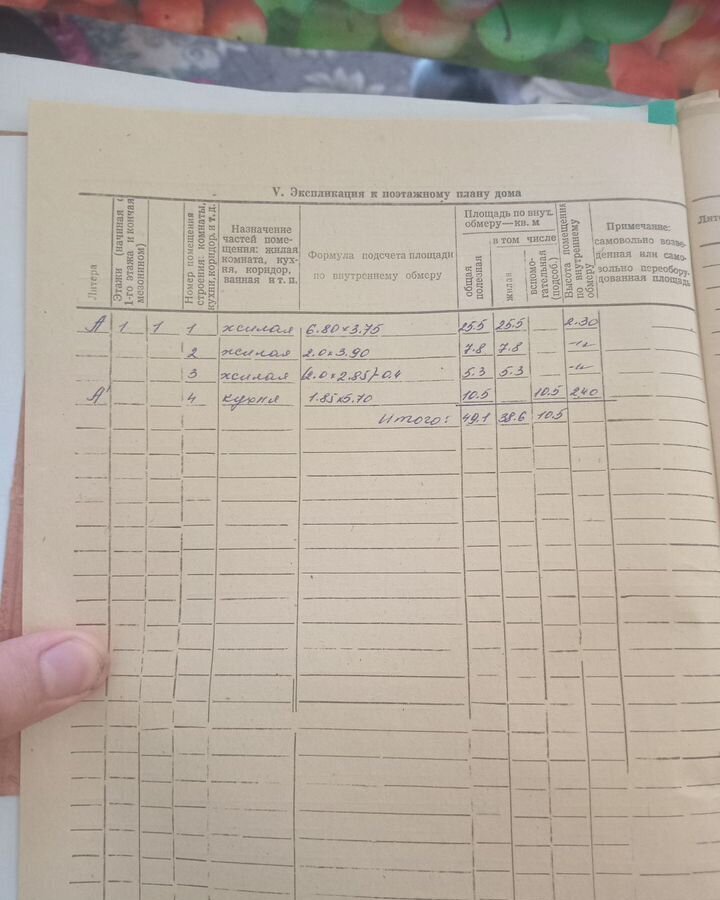 V. Экспликация к поэтажному плану дома
Литера
Этажи (начиная с 1-го этажа и кончая мезонином)
Номер помещения строения: комнаты, кухни, коридор, и т. д.
Назначение частей помещения: жилая комната, кухня, коридор, ванная и т. п.
Формула подсчета площади по внутреннему обмеру
Площадь по внут. обмеру—кв. м
общая полезная
в том числе
жилая
вспомогательная (подсоб.)
Высота помещения по внутреннему обмеру
Примечание: самовольно возведенная или самовольно переоборудованная площадь
А 1 1 1 жилая 6.80×3.75 25.5 25.5 — 2.30
2 жилая 2.0×3.90 7.8 7.8 — -"-
3 жилая (2.0×2.85)-0.4 5.3 5.3 — -"-
А' 4 кухня 1.85×5.70 10.5 — 10.5 240
Итого: 49.1 38.6 10.5